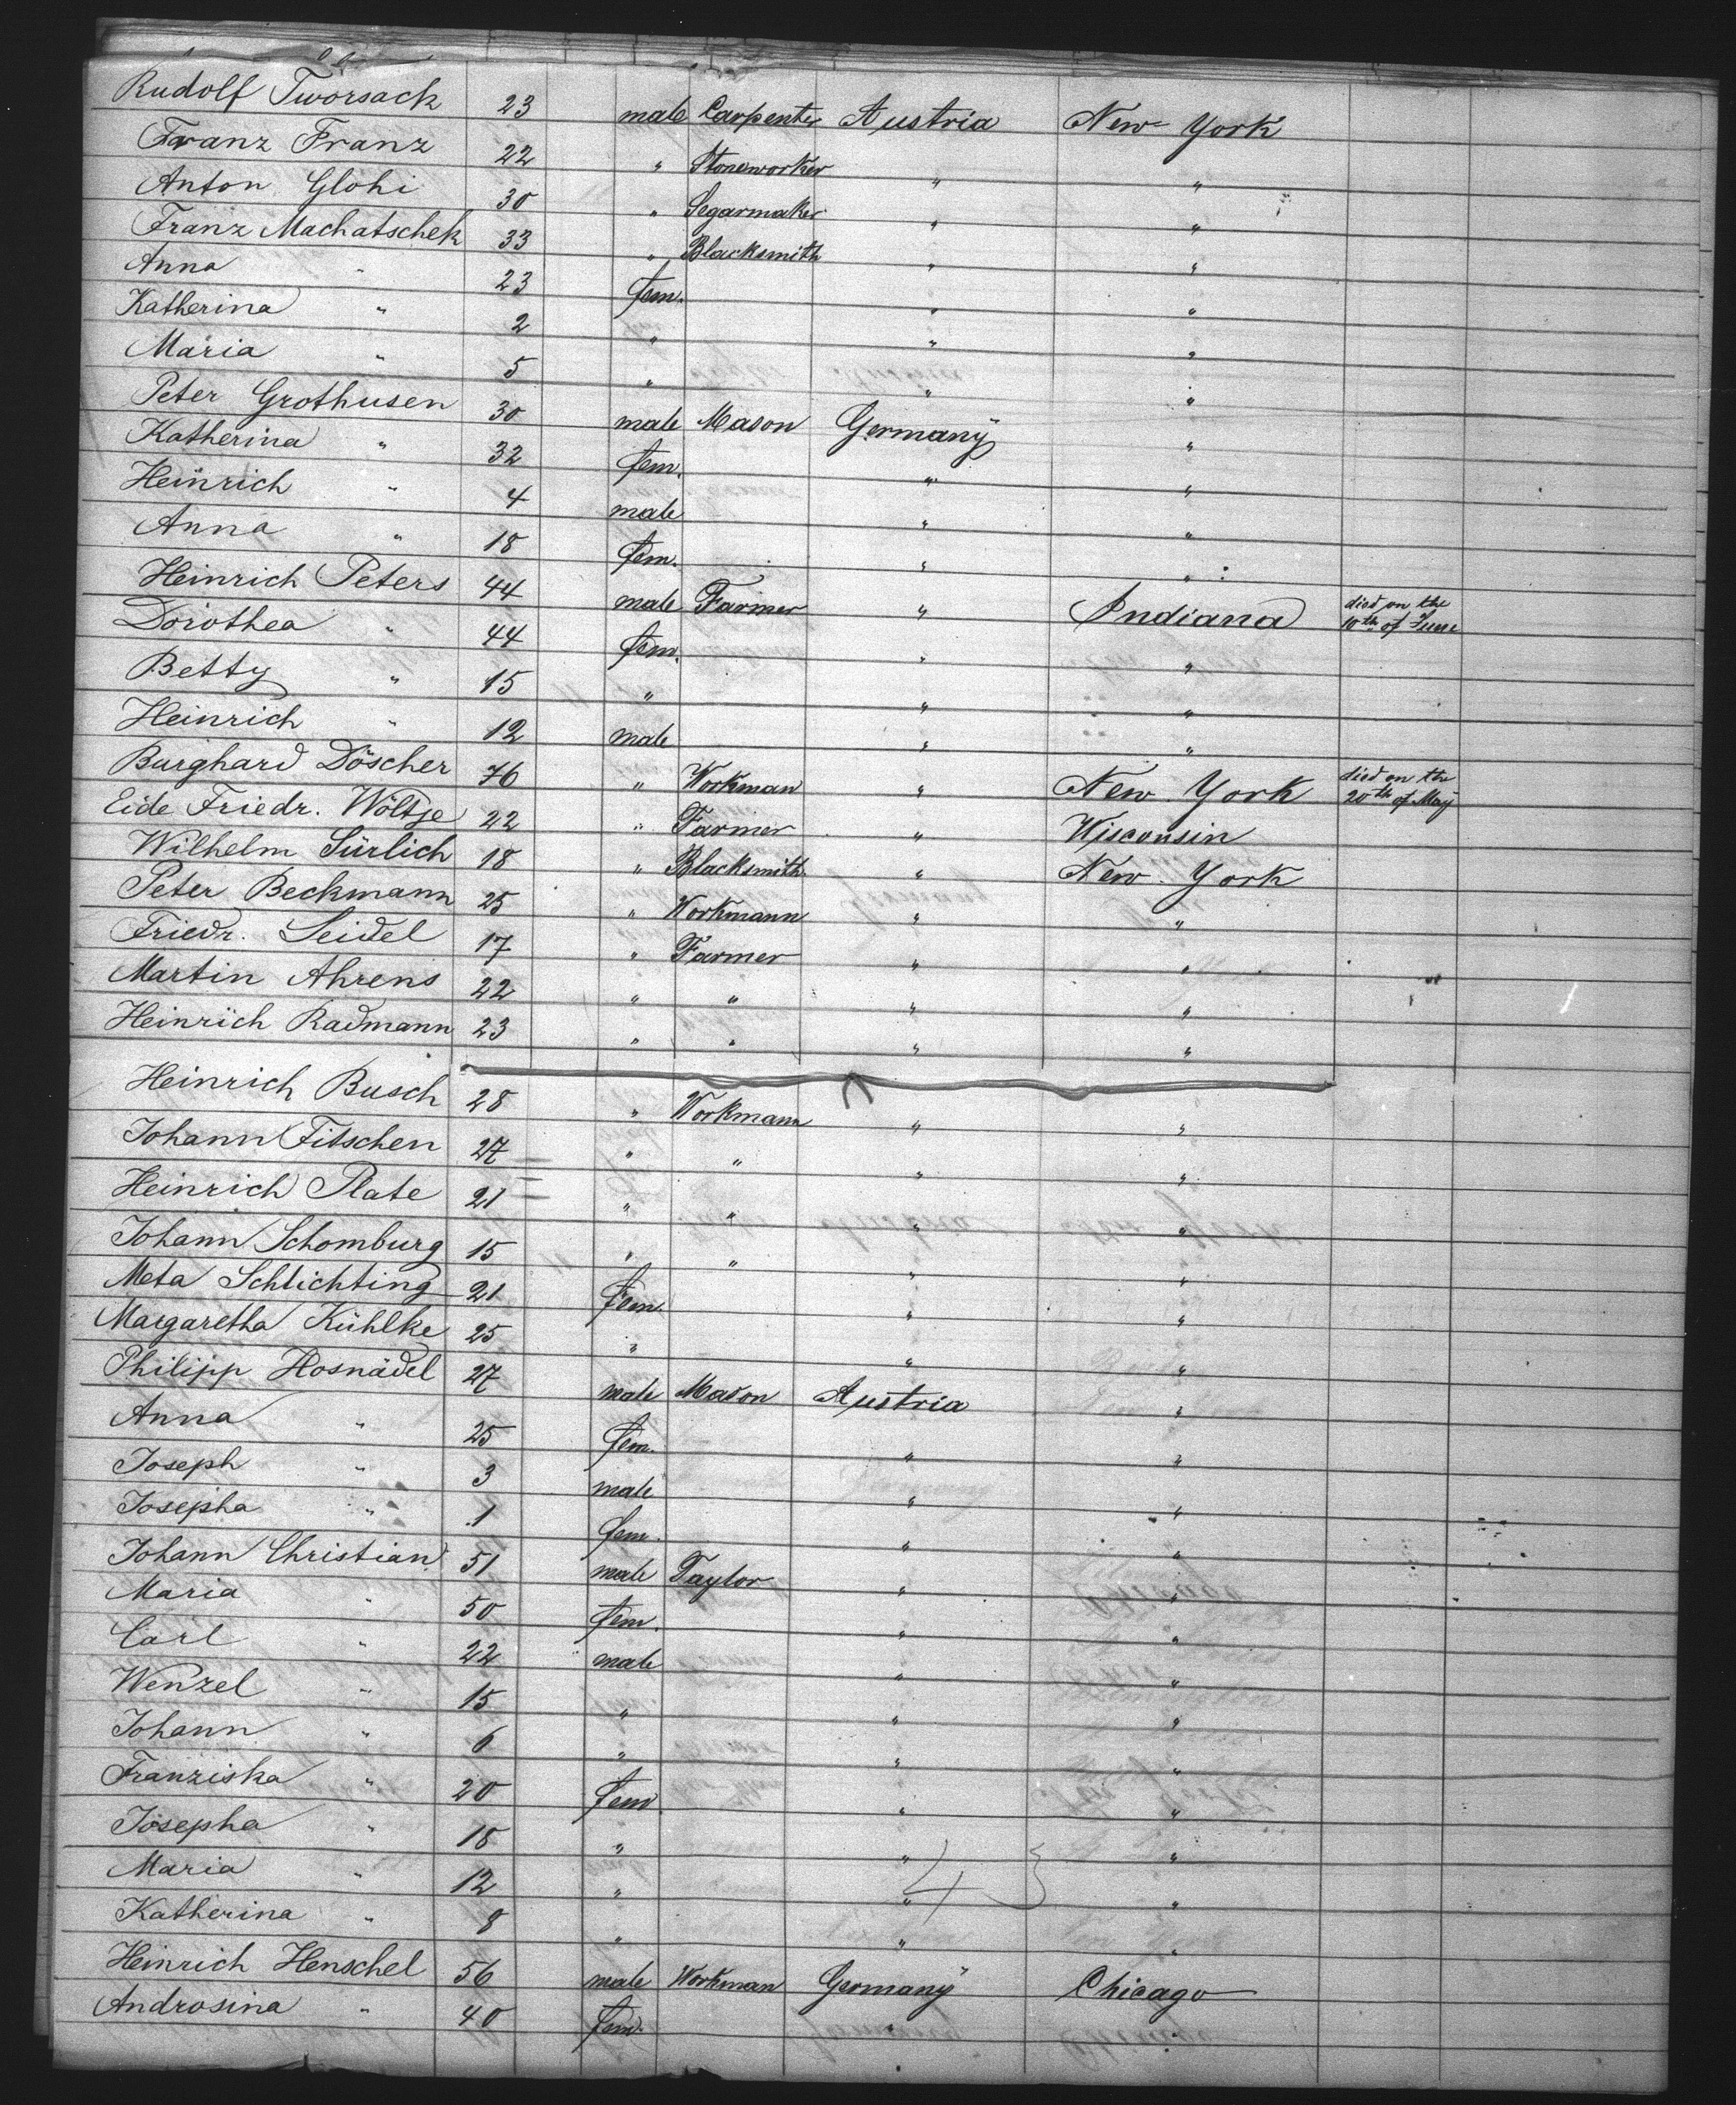 Rudolf Tworsack 23 male Carpenter Austria New York
Franz Franz 22 " Stoneworker " "
Anton Glohi 30 " Segarmaker " "
Franz Machatschek 33 " Blacksmith " "
Anna " 23 fem. " "
Katherina " 2 " " "
Maria " 5 " " "
Peter Grothusen 30 male Mason Germany "
Katherina " 32 fem. " "
Heinrich " 4 male " "
Anna " 18 fem. " "
Heinrich Peters 44 male Farmer " Indiana died on the 10th of June
Dorothea " 44 fem. " "
Betty " 15 " " "
Heinrich " 12 male " "
Burghard Döscher 76 " Workman " New York died on the 20th of May
Eide Friedr. Wöltje 22 " Farmer " Wisconsin
Wilhelm Sürlich 18 " Blacksmith " New York
Peter Beckmann 25 " Workmann " "
Friedr. Seidel 17 " Farmer " "
Martin Ahrens 22 " " " "
Heinrich Radmann 23 " " " "
Heinrich Busch 28 " Workmann " "
Johann Fitschen 27 " " " "
Heinrich Plate 21 " " " "
Johann Schomburg 15 " " " "
Meta Schlichting 21 fem. " "
Margaretha Kühlke 25 " " "
Philipp Hosnädel 27 male Mason Austria "
Anna " 25 fem. " "
Joseph " 3 male " "
Josepha " 1 fem. " "
Johann Christian 51 male Taylor " "
Maria " 50 fem. " "
Carl " 22 male " "
Wenzel " 15 " " "
Johann " 6 " " "
Franziska " 20 fem. " "
Josepha " 18 " " "
Maria " 12 " " "
Katherina " 8 " " "
Heinrich Henschel 56 male Workman Germany Chicago
Androsina " 40 fem. " "